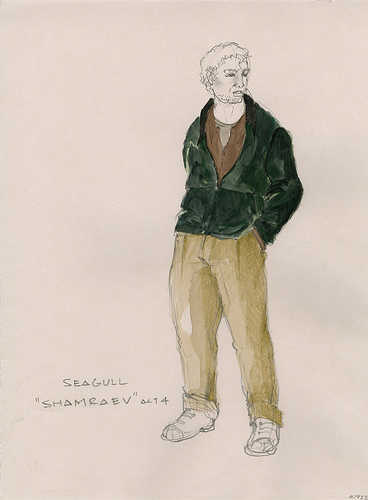 SEAGULL
"SHAMRAEV" ACT 4